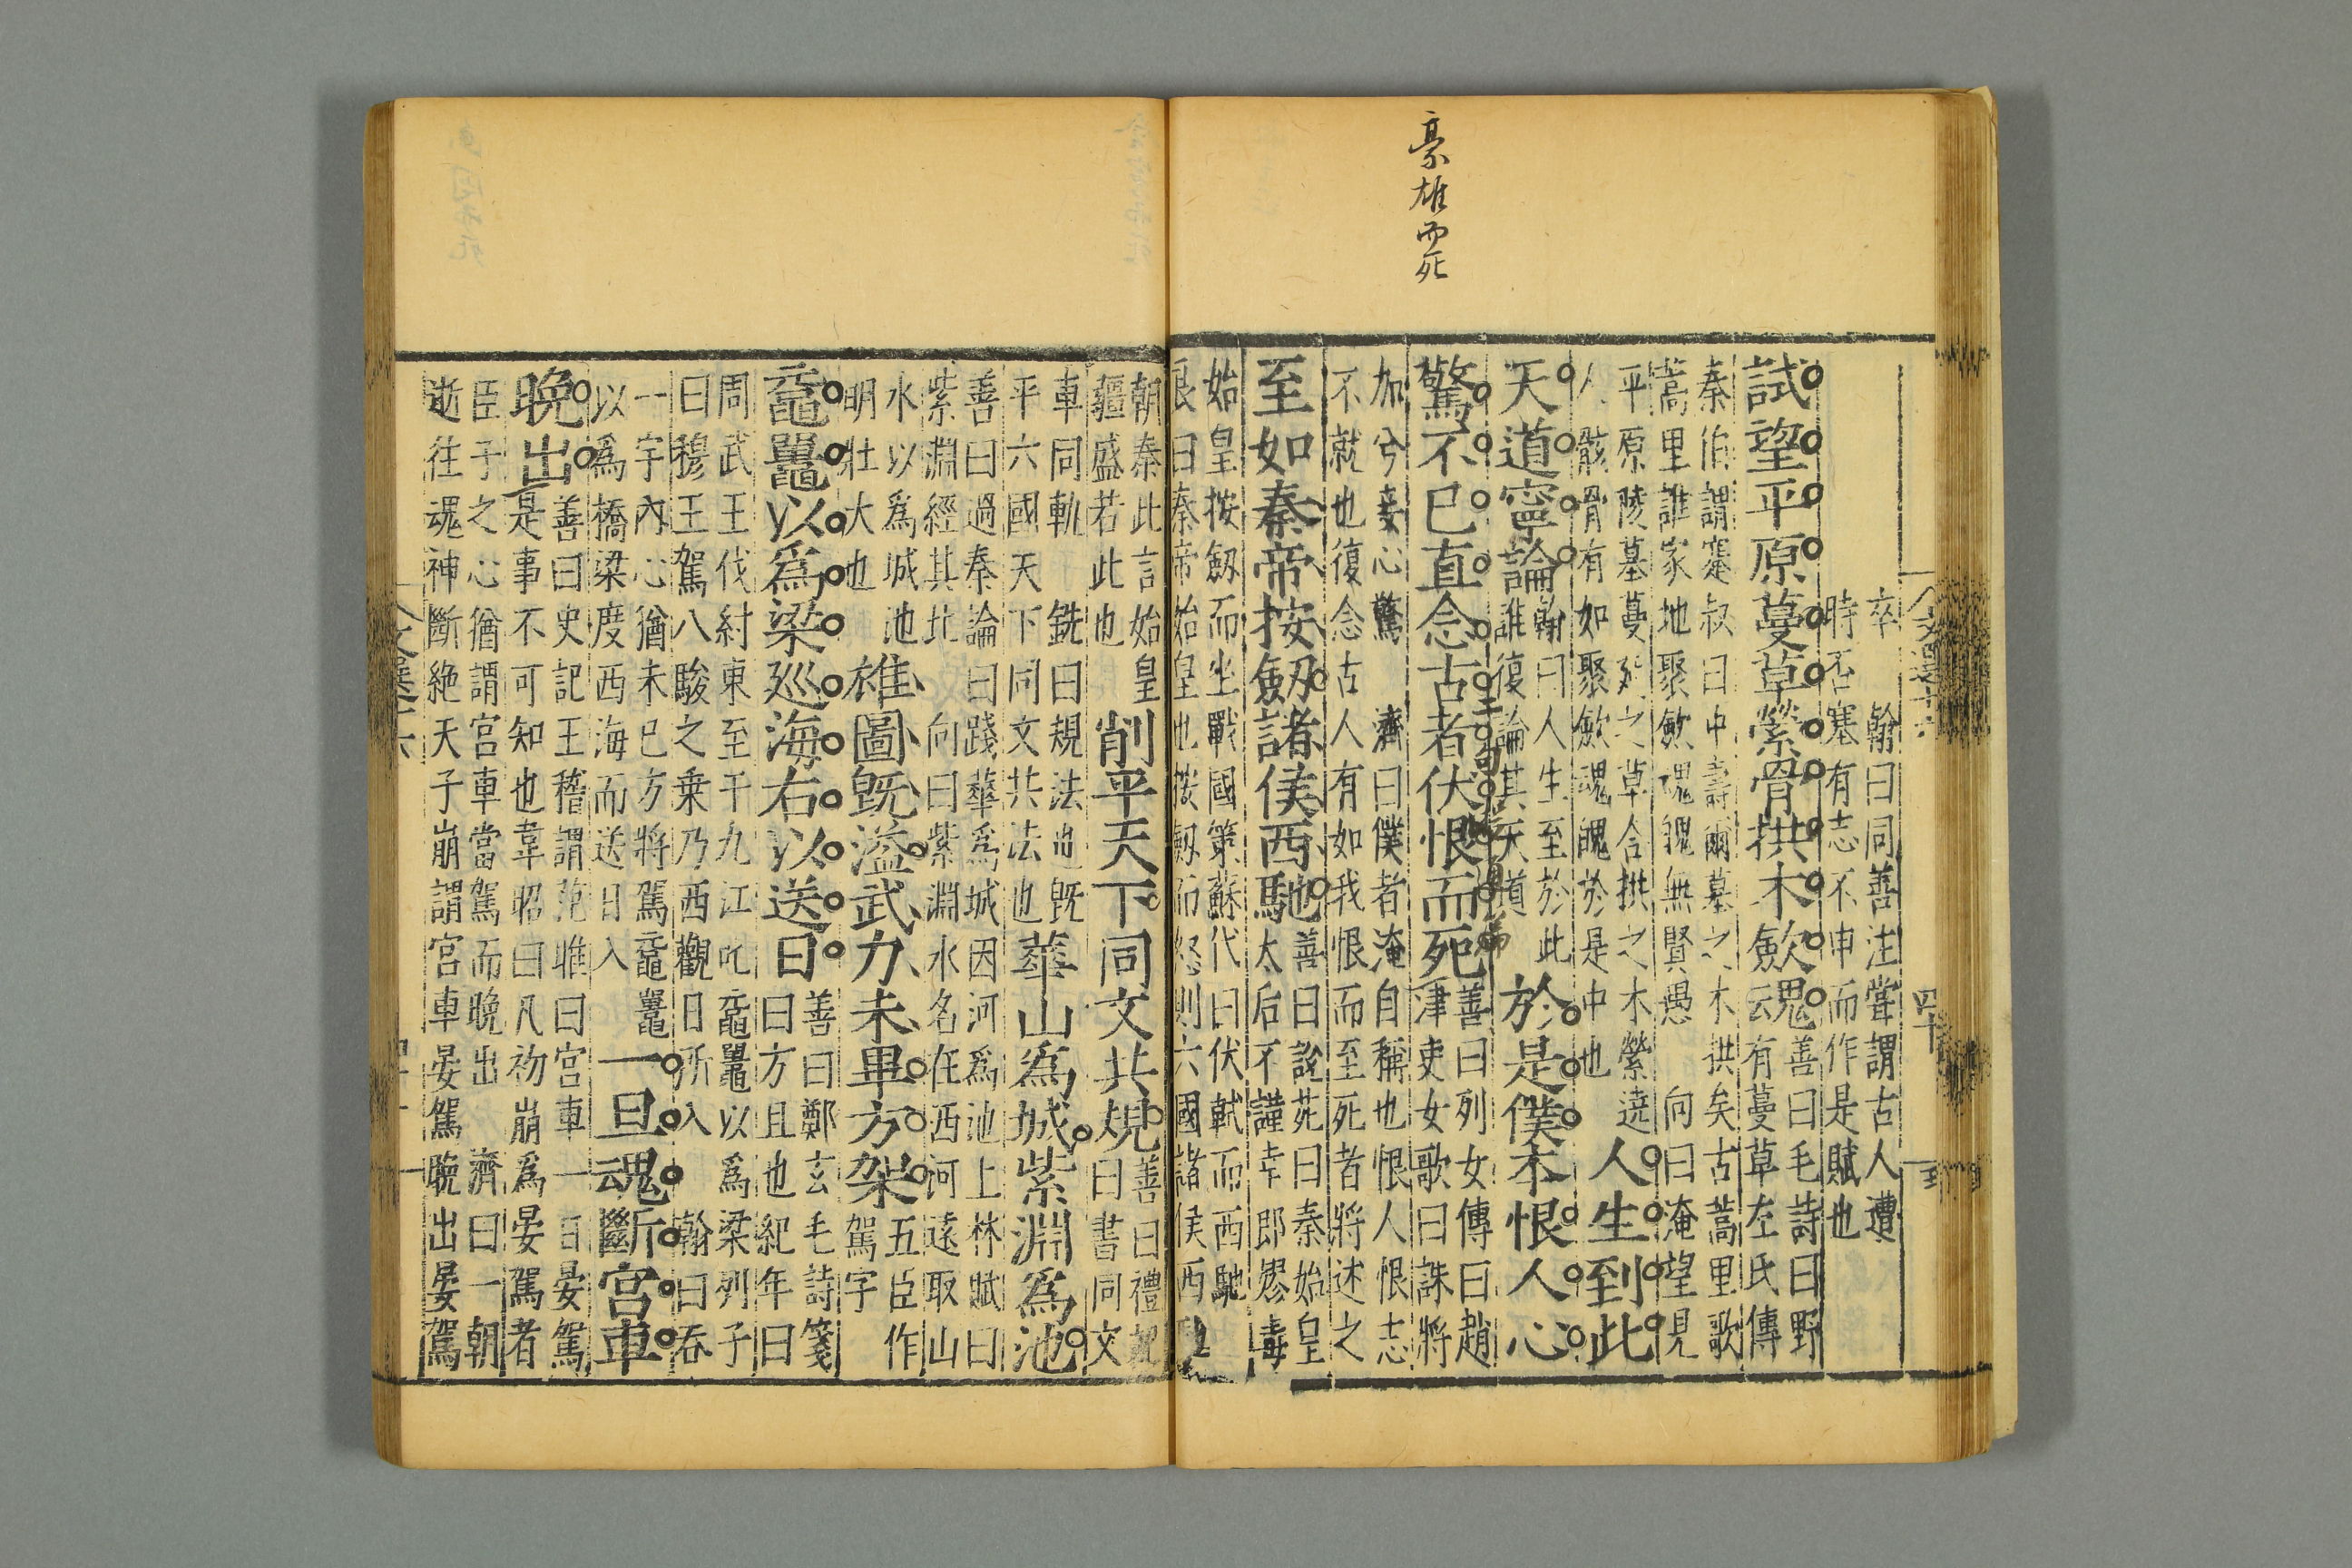 豪雄而死
卒 翰曰同善注嘗謂古人遭
時否塞有志不申而作是賦也
試望平原蔓草縈骨拱木斂魂
善曰毛詩曰野
云有蔓草左氏傳
秦伯謂蹇叔曰中壽爾墓之木拱矣古蒿里歌
蒿里誰家地聚斂魂魄無賢愚 向曰淹望見
平原陵墓蔓延之草合拱之木縈遶
人骸骨有如聚斂魂魄於是中也
人生到此
天道寧論
翰曰人生至於此
誰復論其天道
於是僕本恨人心
驚不已直念古者伏恨而死
善曰列女傳曰趙
津吏女歌曰誅將
加兮妾心驚 濟曰僕者淹自稱也恨人恨志
不就也復念古人有如我恨而至死者將述之
至如秦帝按劒諸侯西馳
善曰說苑曰秦始皇
太后不謹幸郎嫪毐
始皇按劒而坐戰國策蘇代曰伏軾而西馳
良曰秦帝始皇也按劒而怒則六國諸侯西
朝秦此言始皇
彊盛若此也
削平天下同文共規
善曰禮記
曰書同文
車同軌 銑曰規法也旣
平六國天下同文共法也
華山爲城紫淵爲池
善曰過秦論曰踐華爲城因河爲池上林賦曰
紫淵經其北 向曰紫淵水名在西河遠取山
水以爲城池
明壯大也
雄圖旣溢武力未畢方架
五臣作
駕字
黿鼉以爲梁巡海右以送日
善曰鄭玄毛詩箋
曰方且也紀年曰
周武王伐紂東至于九江叱黿鼉以爲梁列子
曰穆王駕八駿之乗乃西觀日所入 翰曰吞
一宇內心猶未已方將駕黿鼉
以爲橋梁度西海而送日入
一旦魂斷宮車
晚出
善曰史記王稽謂范雎曰宮車一日晏駕
是事不可知也韋昭曰凡初崩爲晏駕者
臣子之心猶謂宮車當駕而晚出 濟曰一朝
逝往魂神斷絶天子崩謂宮車晏駕晚出晏駕